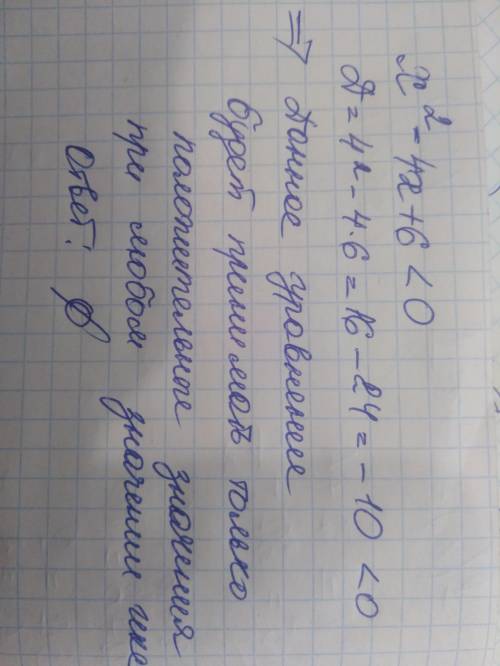 x² - 4x + 6 < 0
D = 4² - 4·6 = 16 - 24 = - 10 < 0
⇒ Данное уравнение
будет принимать только
положительные значения
при любом значении икс
Ответ: ∅